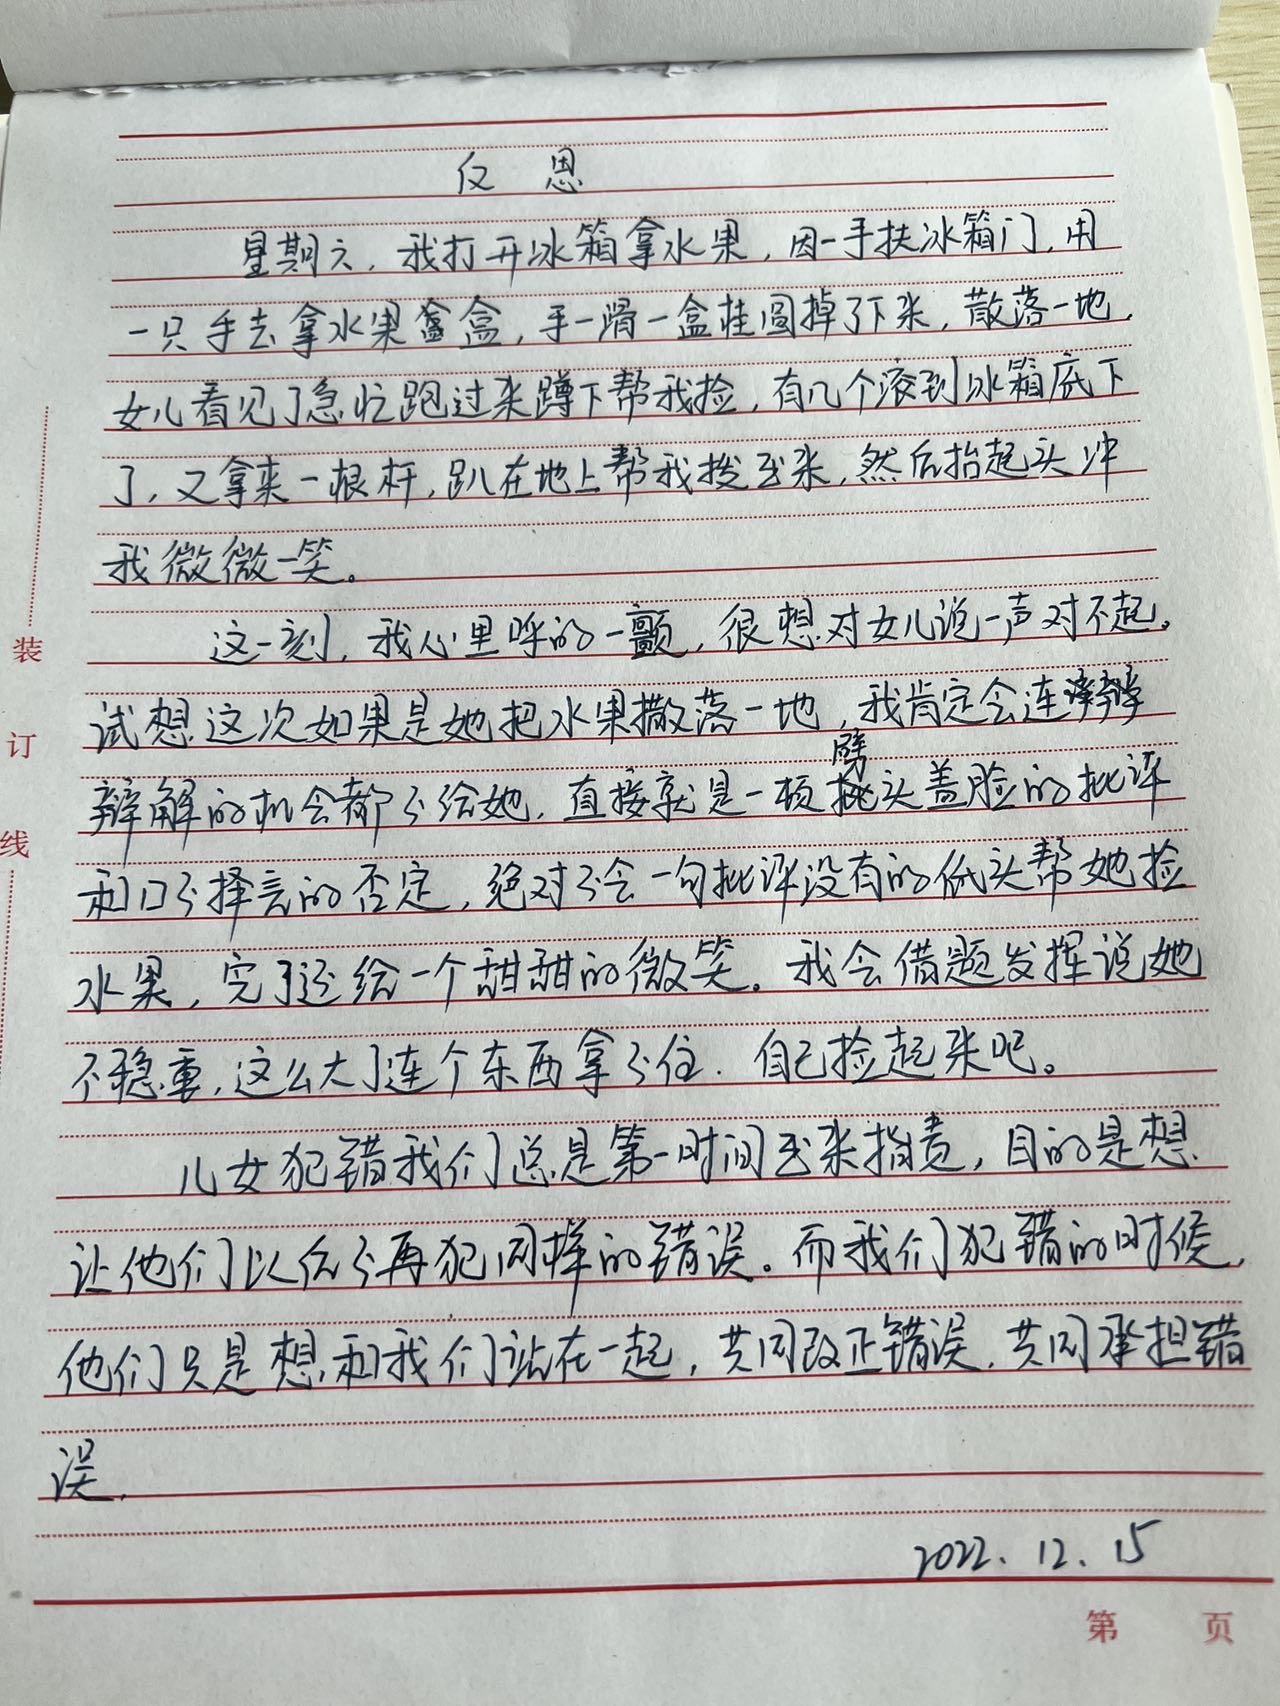 反思
星期六，我打开冰箱拿水果，因一手扶冰箱门，用
一只手去拿水果盒，手一滑一盒桂圆掉了下来，散落一地，
女儿看见了急忙跑过来蹲下帮我捡，有几个滚到冰箱底下
了，又拿来一根杆，趴在地上帮我拨出来，然后抬起头冲
我微微一笑。
这一刻，我心里呼的一颤，很想对女儿说一声对不起。
试想这次如果是她把水果撒落一地，我肯定会连
辩解的机会都不给她，直接就是一顿劈头盖脸的批评
和口不择言的否定，绝对不会一句批评没有的低头帮她捡
水果，完了还给一个甜甜的微笑。我会借题发挥说她
不稳重，这么大了连个东西拿不住．自己捡起来吧。
儿女犯错我们总是第一时间出来指责，目的是想
让他们以后不再犯同样的错误。而我们犯错的时候，
他们只是想和我们站在一起，共同改正错误，共同承担错
误．
2022.12.15
装
订
线
第 页